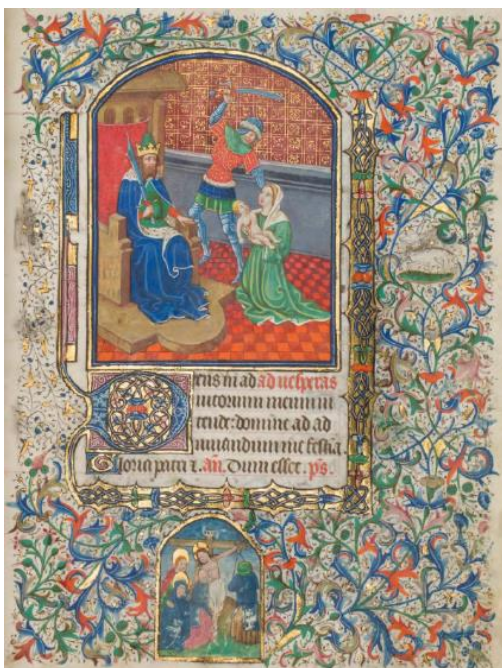 Deus in ad ad uesperas
iutorium meum in
tende: domine ad ad
iuuandum me festīa
Gloria patri ⁊. añ. Dum esset. ps.